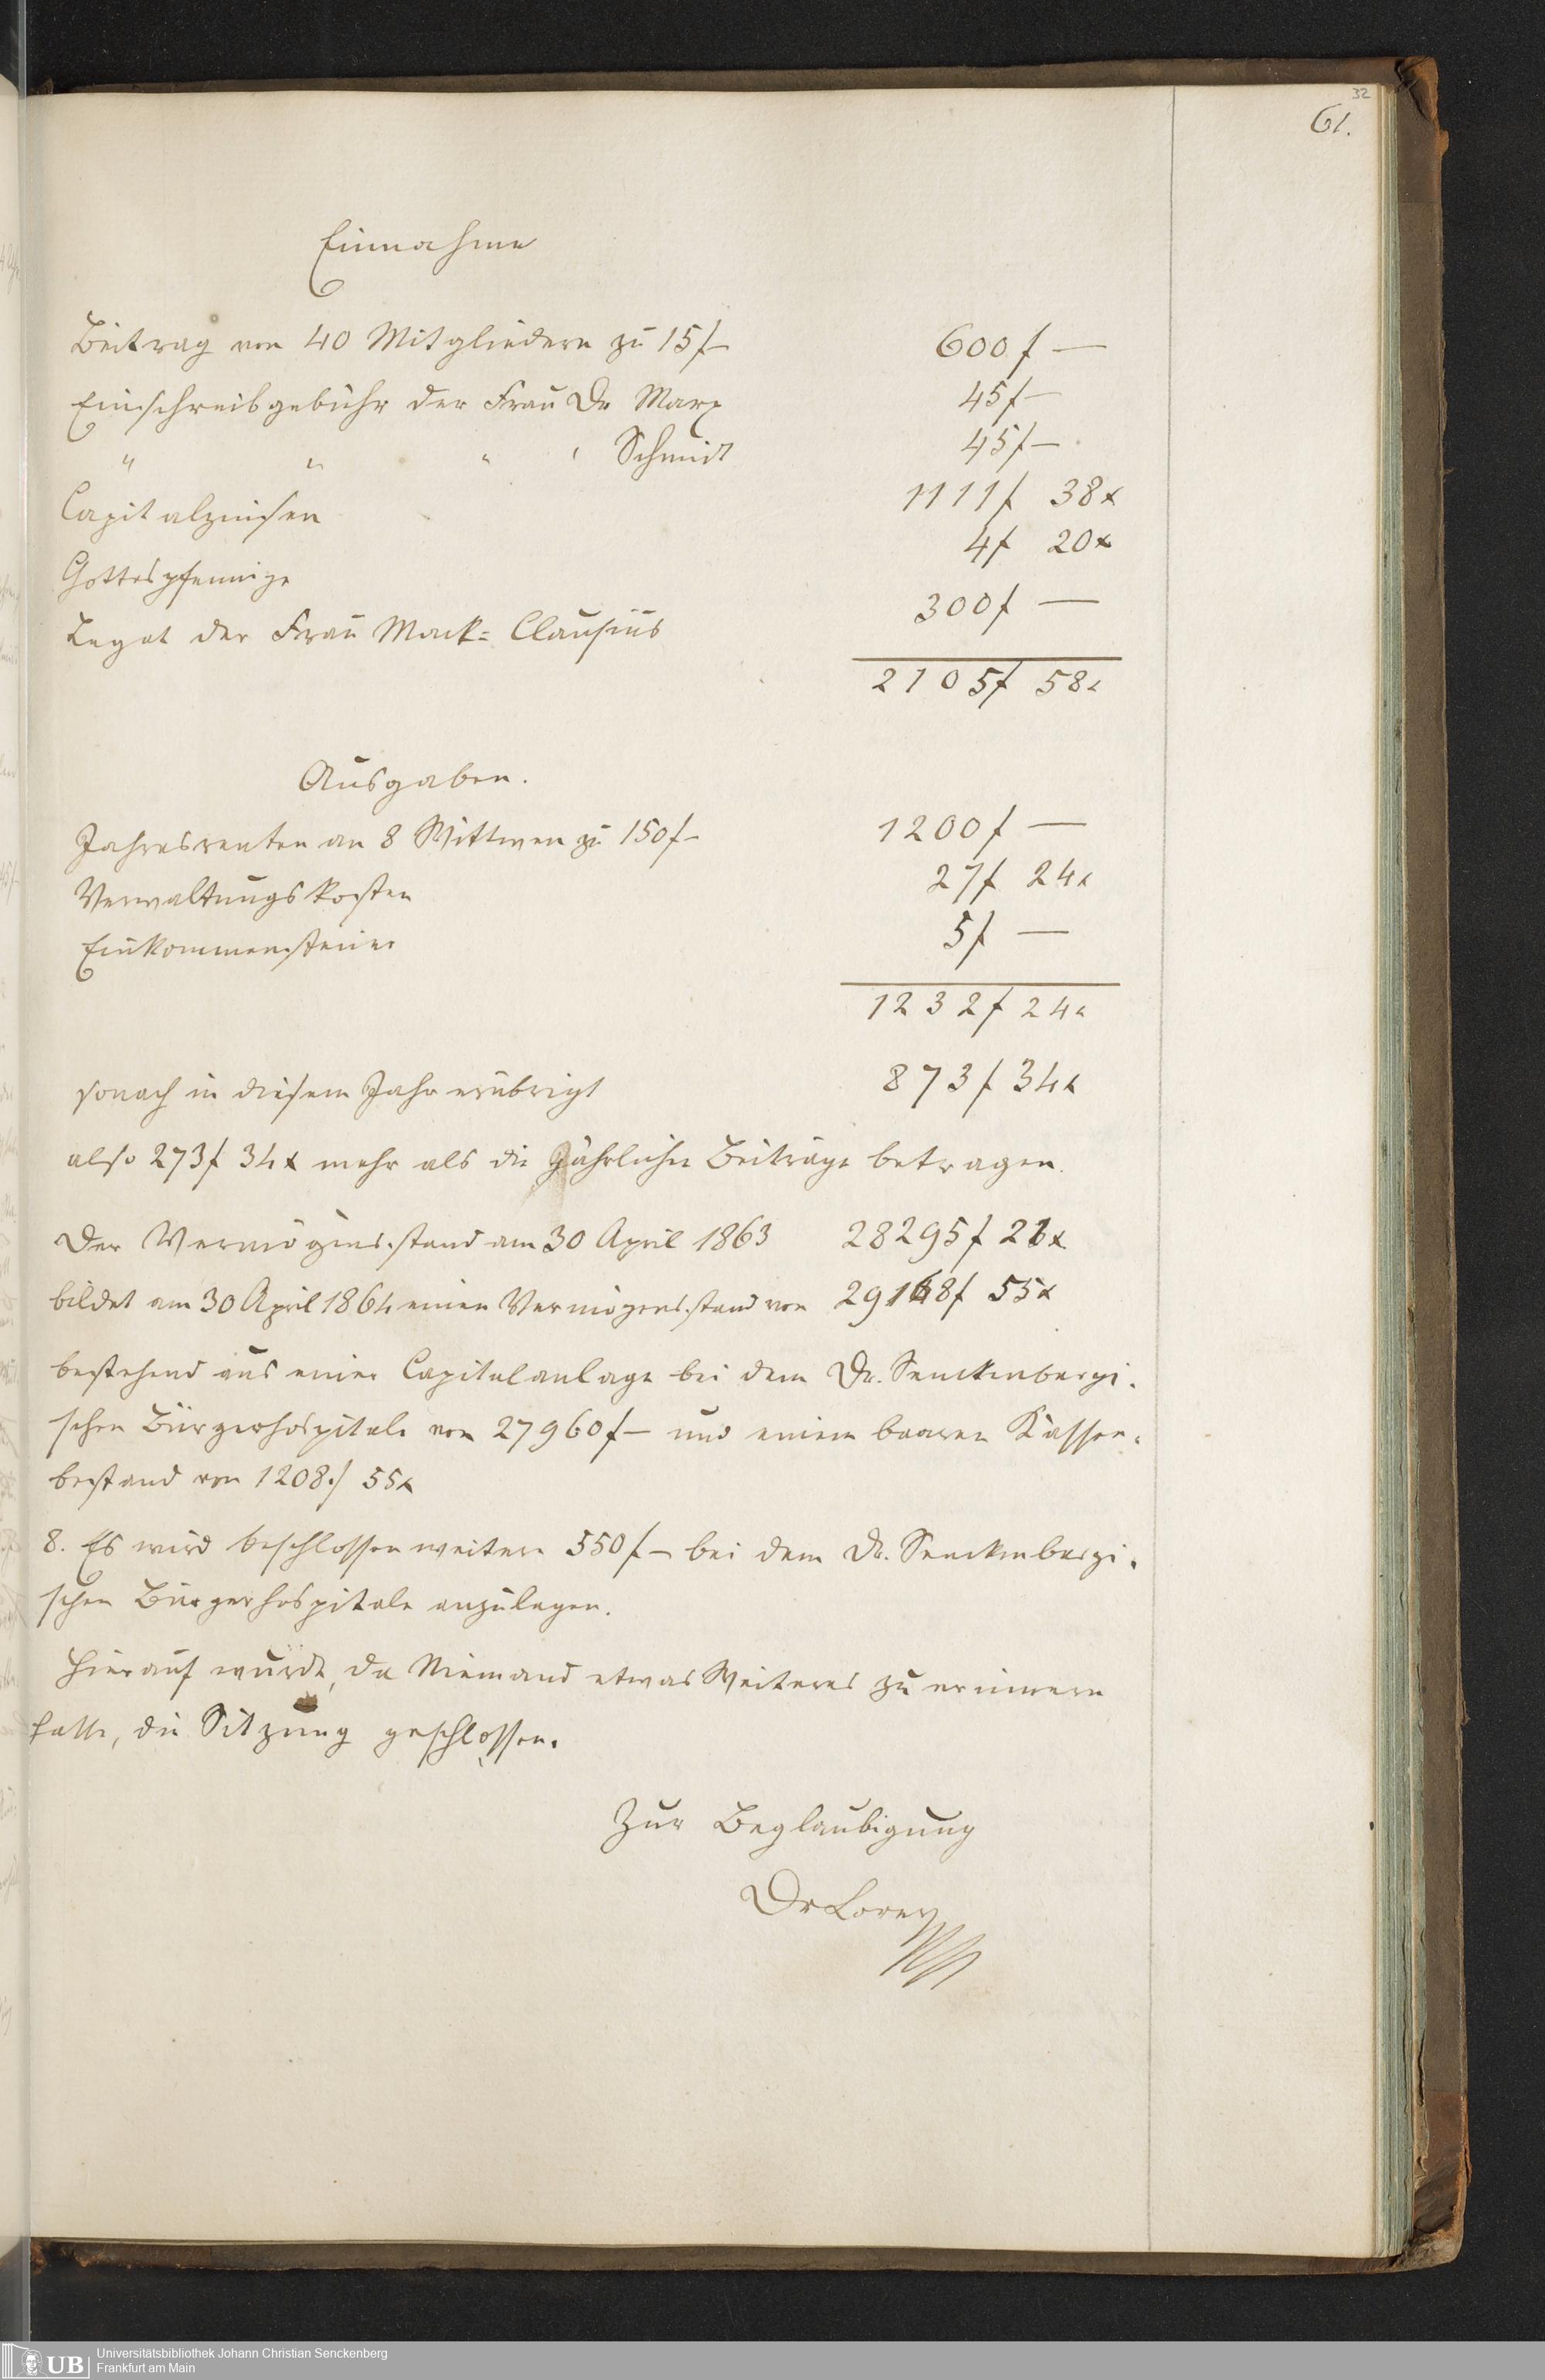 32
61.
Einnahme
Beitrag von 40 Mitgliedern zu 15f– 600f –
Einschreibgebühr der Frau Dr Marx 45f –
" " " " Schmidt 45f –
Capitalzinsen 1111f 38x
Gottespfennige 4f 20x
Legat der Frau Mack= Clausius 300f –
2105f 58x
Ausgaben.
Jahresrenten an 8 Wittwen zu 150f– 1200f –
Verwaltungskosten 27f 24x
Einkommensteuer 5f –
1232f 24x
sonach in diesem Jahr erübrigt 873f 34x
also 273f 34x mehr als die Jährlichen Beiträge betragen.
Der Vermögensstand am 30 April 1863 28295f 21x
bildet am 30 April 1864 einen Vermögensstand von 29168f 55x
bestehend aus einer Capitalanlage bei dem Dr. Senckenbergi-
schen Bürgerhospitale von 27960f– und einem baaren Kassen-
bestand von 1208f 55x
8. Es wird beschlossen weitere 550f– bei dem Dr. Senckenbergi-
schen Bürgerhospitale anzulegen.
Hierauf wurde, da Niemand etwas Weiteres zu erinnern
hatte, die Sitzung geschlossen.
Zur Beglaubigung
Dr Lorey
UB
Universitätsbibliothek Johann Christian Senckenberg
Frankfurt am Main